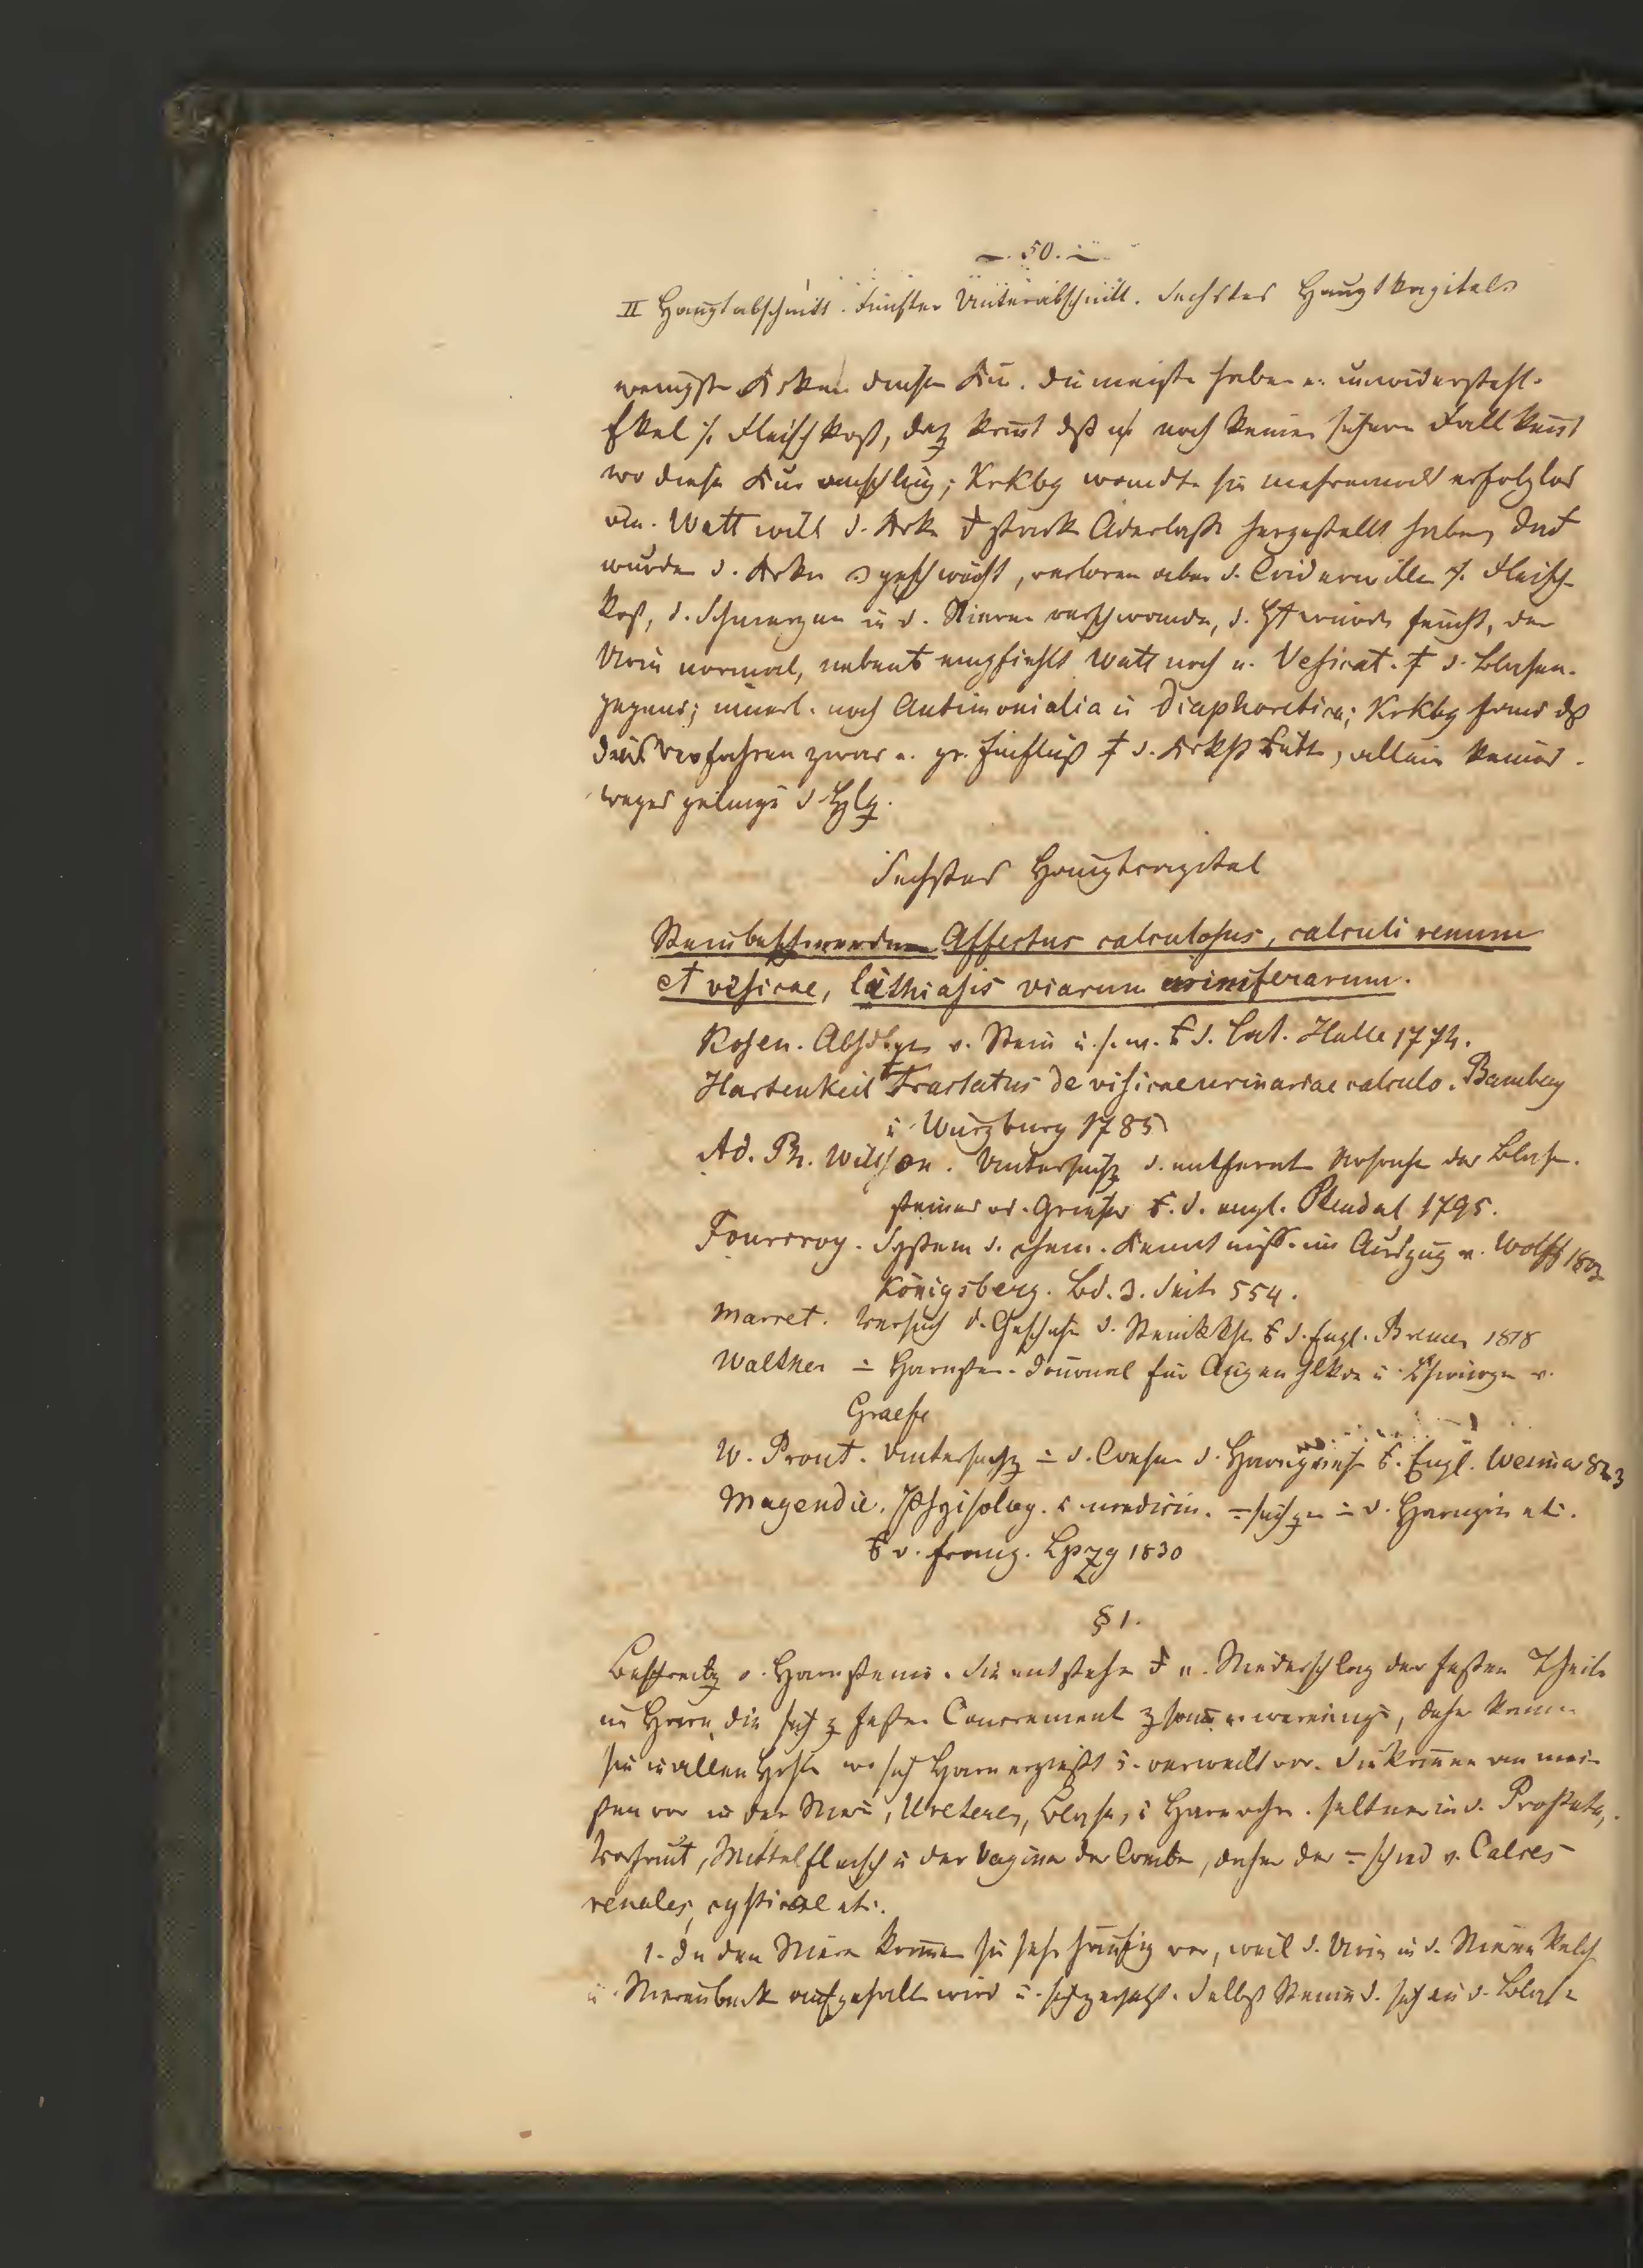 50.
II Hauptabschnitt. Fünfter Unterabschnitt. Sechstes Hauptkapitel
wenigsten Krken diese Kur. die meisten haben e. unwiderstehl.
Ekel Fleischkost, kömt daß noch keinen sichern Fall kent
wo diese Kur anschlug; Krkbg wandte sie mehremals erfolglos
an. Watt will d. Krke starke Aderlässe hergestellt haben,
wurden d. Krken geschwächt, verloren aber d. Widerwillen Fleisch-
kost, d. Schmerzen in d. Nieren verschwanden, d. Ht wurde feucht, der
Urin normal, empfiehlt Watt noch e. Vesicat. d. Blasen-
gegend; innerl. noch Antimonialia u Diaphoretica; Krkbg fand dß
dieß Verfahren zwar e. gr. Einfluß d. hatte, allein keines-
weges gelinge d. Hlg.
Sechstes Hauptcapitel
Steinbeschwerden Affectus calculosus, calculi renum
et vesicae, lithiasis viarum uriniferarum.
Rosen. v. Stein u.s.w. d. Lat. Halle 1774.
Hartenkeil Tractatus de vesicae urinariae calculo. Bamberg
u Würzburg 1785
Ad. Ph. Wilson. Untersuchg d. entfernt Ursache der Blasen-
steines od. Grieses d. engl. Stendal 1795.
Fourcroy. System d. chem. Kenntniss. im Auszug v. Wolff 1803
Königsberg. Bd. 3. Seite 554.
Marcet. Versuch d. Geschichte d. Steinkkh d. Engl. Bremen 1818
Walther Harnsteine. Journal für Augenhlkde u Chirurgie v.
Graefe
W. Prout. Untersuchg d. Wesen d. Harngries Engl. Weimar 823
Magendie. Physiolog. u medicin. suchgen d. Harngries etc.
v. franz. Lpzg 1830
§ 1.
Beschreibg d. Harnsteine. Sie entstehen e. Niederschlag der festen Theile
im Harn, die sich z festen Concrement zsamen vereinigen, daher komen
sie in allen wo sich Harn ergießt u. verweilt vor. Sie komen am mei-
sten vor in den Niere, Ureteren, Blase, u Harnröhre. seltner in d. Prostata,
Vorhaut, Mittelfleisch u der Vagina der Weiber, daher der schied v. Calces
renales, cysticae etc.
1. In den Nieren komen sie sehr häufig vor, weil d. Urin in d. Nierenkelch
u. Nierenbeck aufgehalt wird u. sich zersetzt. Selbst Steine d. sich in d. Blase